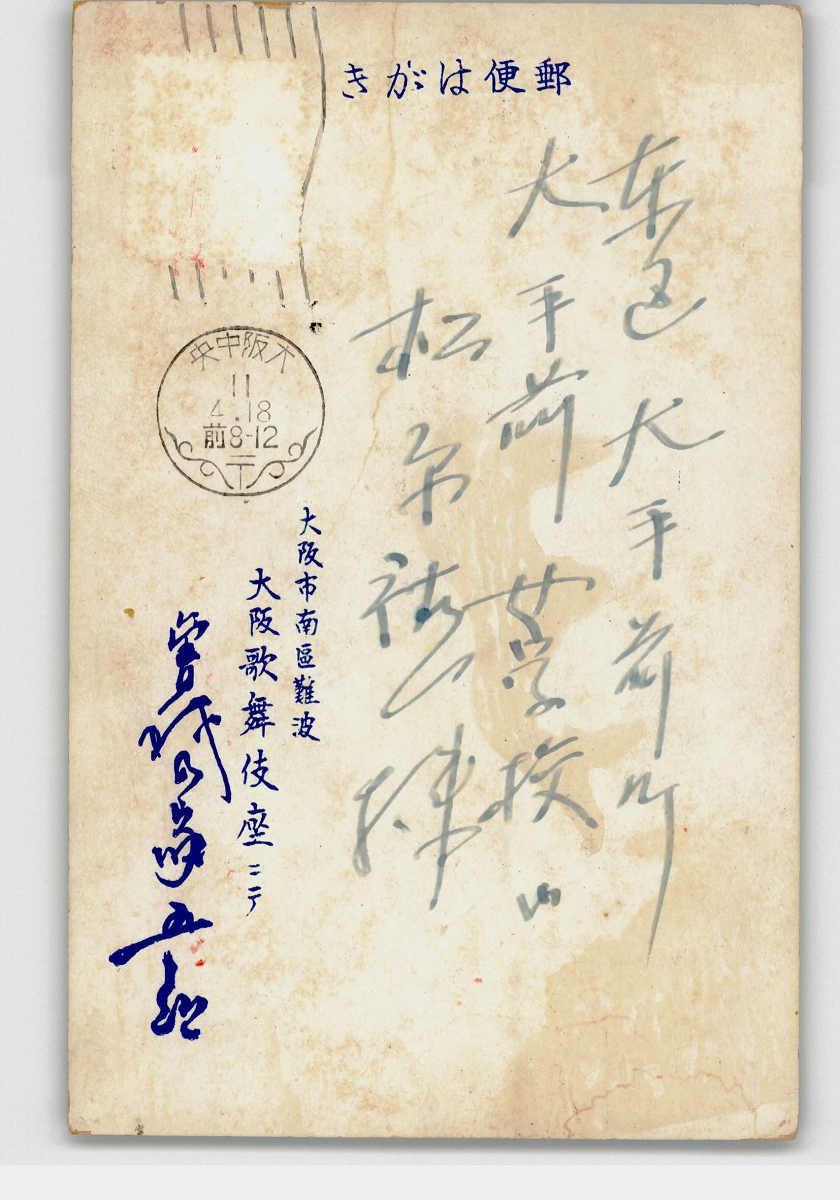 きがは便郵
東區大手前町
大手前女学校
松
様
央中阪大
11
4.18
前8-12
大阪市南區難波
大阪歌舞伎座ニテ
曽我の家五郎